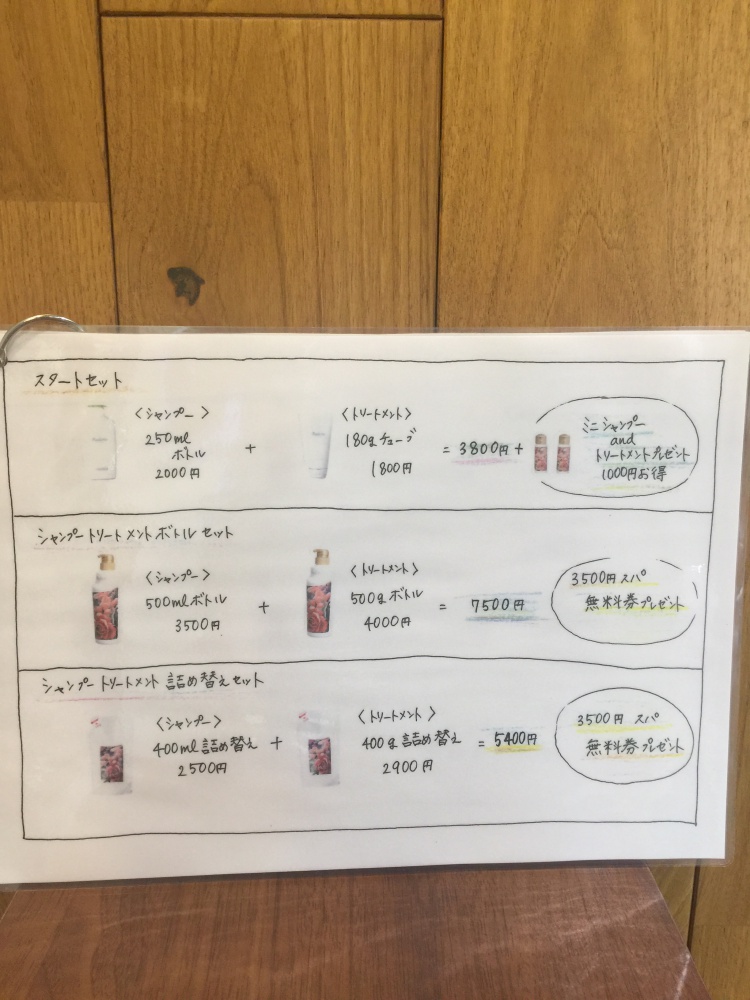 スタートセット
〈シャンプー〉
250ml
ボトル
2000円
+
〈トリートメント〉
180gチューブ
1800円
= 3800円 +
ミニシャンプー
and
トリートメントプレゼント
1000円お得
シャンプートリートメントボトルセット
〈シャンプー〉
500mlボトル
3500円
+
〈トリートメント〉
500gボトル
4000円
= 7500円
3500円スパ
無料券プレゼント
シャンプートリートメント詰め替えセット
〈シャンプー〉
400ml詰め替え
2500円
+
〈トリートメント〉
400g詰め替え
2900円
= 5400円
3500円スパ
無料券プレゼント